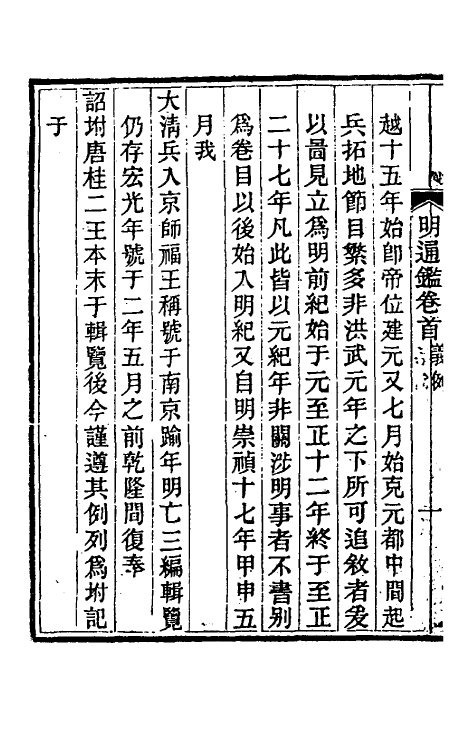 明通鑑卷首 義例
越十五年始卽帝位建元又七月始克元都中間起
兵拓地節目繁多非洪武元年之下所可追敘者爰
以啚見立爲明前紀始于元至正十二年終于至正
二十七年凡此皆以元紀年非關涉明事者不書別
爲卷目以後始入明紀又自明崇禎十七年甲申五
月我
大淸兵入京師福王稱號于南京踰年明亡三編輯覽
仍存宏光年號于二年五月之前乾隆間復奉
詔坿唐桂二王本末于輯覽後今謹遵其例列爲坿記
于